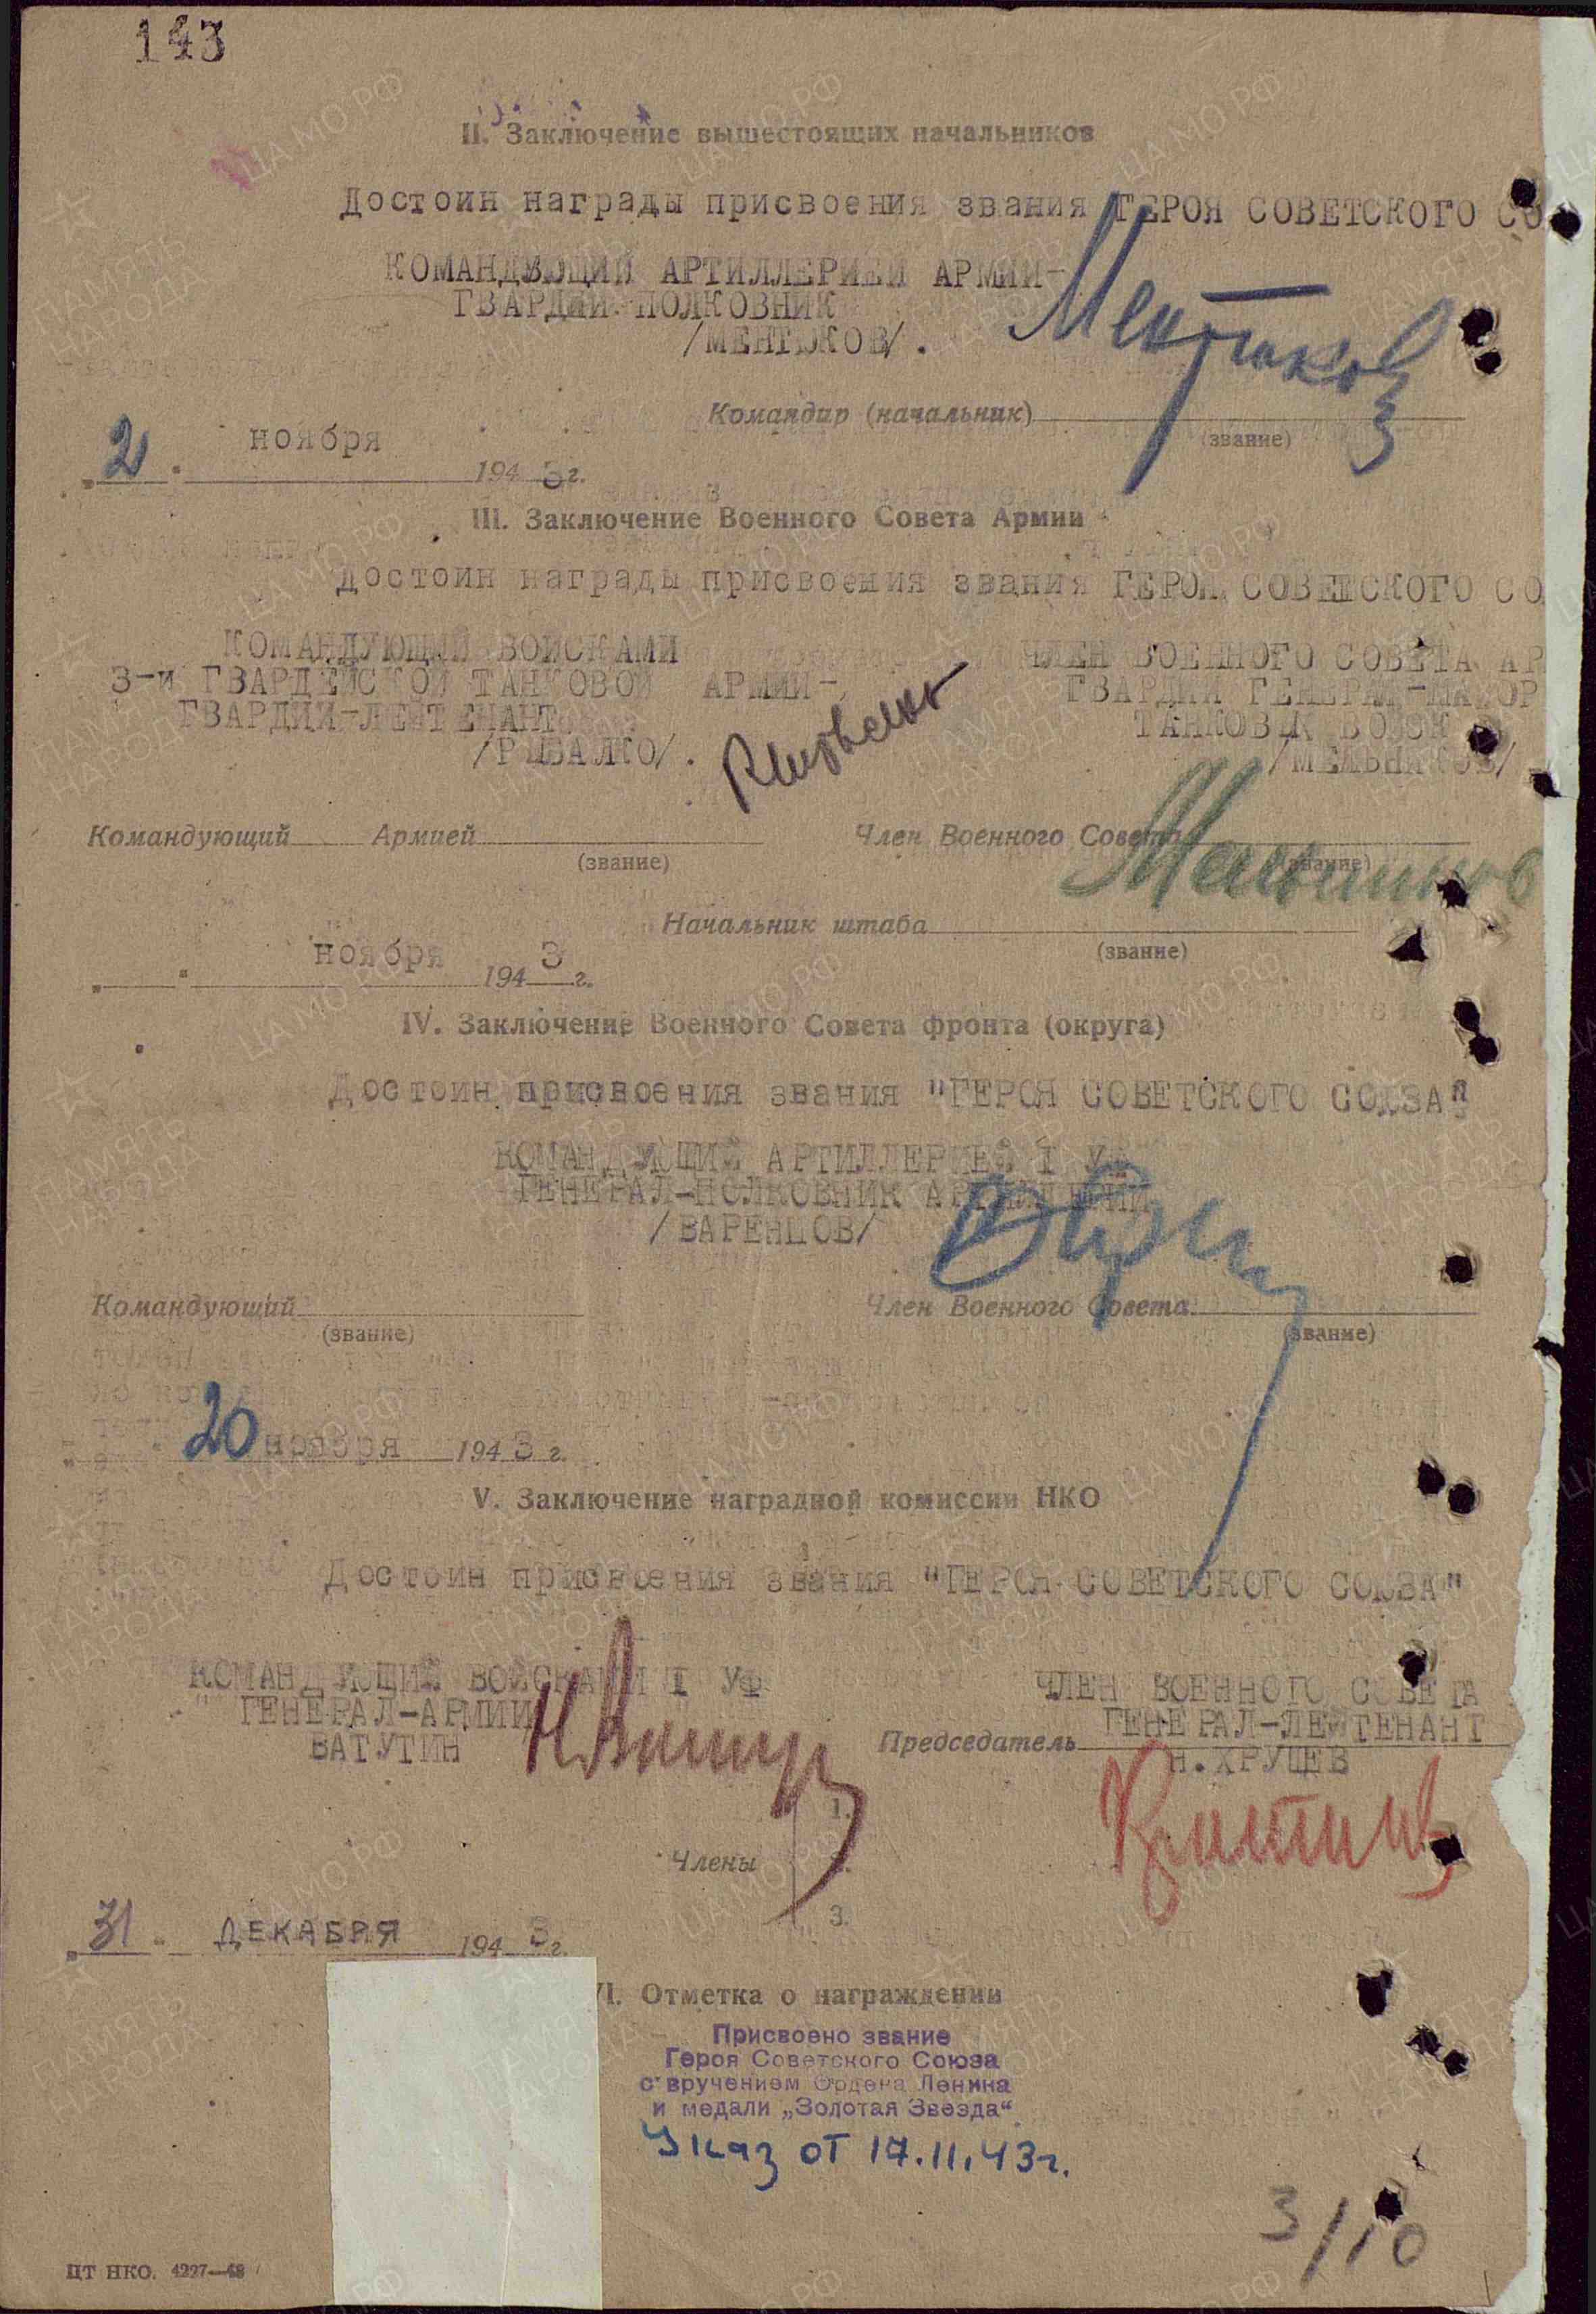 143
II. Заключение вышестоящих начальников
Достоин награды присвоения звания ГЕРОЯ СОВЕТСКОГО СО
КОМАНДУЮЩИЙ АРТИЛЛЕРИЕЙ АРМИИ-
ГВАРДИИ ПОЛКОВНИК
/МЕНТЮКОВ/.
Ментюков
Командир (начальник)
(звание)
2 ноября 1943 г.
III. Заключение Военного Совета Армии
Достоин награды присвоения звания ГЕРОЯ СОВЕТСКОГО СО
КОМАНДУЮЩИЙ ВОЙСКАМИ
3-й ГВАРДЕЙСКОЙ ТАНКОВОЙ АРМИИ-
ГВАРДИИ-ЛЕЙТЕНАНТ
/РЫБАЛКО/.
ЧЛЕН ВОЕННОГО СОВЕТА АР
ГВАРДИИ ГЕНЕРАЛ-МАЙОР
ТАНКОВЫХ ВОЙСК
/МЕЛЬНИКОВ/
Командующий Армией
(звание)
Член Военного Совета
(звание)
Мельников
Начальник штаба
(звание)
ноября 1943 г.
IV. Заключение Военного Совета фронта (округа)
Достоин присвоения звания "ГЕРОЯ СОВЕТСКОГО СОЮЗА"
КОМАНДУЮЩИЙ АРТИЛЛЕРИЕЙ I УФ
ГЕНЕРАЛ-ПОЛКОВНИК АРТИЛЛЕРИИ
/ВАРЕНЦОВ/
Командующий
(звание)
Член Военного Совета
(звание)
20 ноября 1943 г.
V. Заключение наградной комиссии НКО
Достоин присвоения звания "ГЕРОЯ СОВЕТСКОГО СОЮЗА"
КОМАНДУЮЩИЙ ВОЙСКАМИ I УФ
ГЕНЕРАЛ-АРМИИ
ВАТУТИН
ЧЛЕН ВОЕННОГО СОВЕТА
ГЕНЕРАЛ-ЛЕЙТЕНАНТ
Председатель
Н.ХРУЩЕВ
1.
Члены
3.
31 ДЕКАБРЯ 1943 г.
VI. Отметка о награждении
Присвоено звание
Героя Советского Союза
с вручением Ордена Ленина
и медали „Золотая Звезда“
Указ от 17.11.43г.
3/10
ЦТ НКО. 4227—43
ПАМЯТЬ НАРОДА
ЦА МО РФ